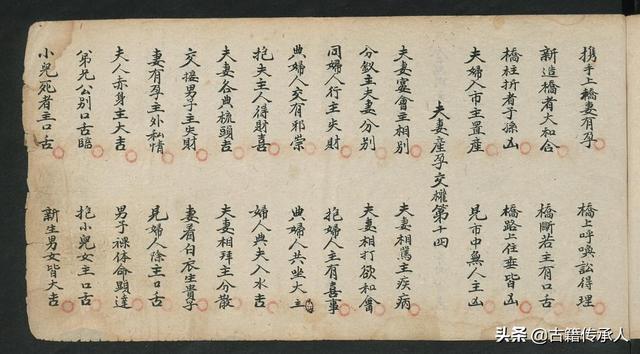 携手上橋妻有孕 橋上呼喚訟得理
新造橋者大和合 橋斷若主有口舌
橋柱折者子孫凶 橋路上住坐皆凶
夫婦入市主置產 見市中無人主凶
夫妻產孕交懽第十四
夫妻宴會主相別 夫妻相罵主疾病
分釵主夫妻分別 夫妻相打欲和會
同婦人行主失財 抱婦人主有喜事
與婦人交有邪祟 與婦人共坐大
抱夫主人得財喜 婦人與夫入水吉
夫妻各與梳頭吉 夫妻相拜主分散
交接男子主失財 妻着白衣生貴子
妻有孕主外私情 見婦人陰主口舌
夫人赤身主大吉 男子裸体命顯達
弟兄分別口舌臨 抱小兒女主口舌
小兒死者主口舌 新生男女皆大吉
头条 @古籍传承人